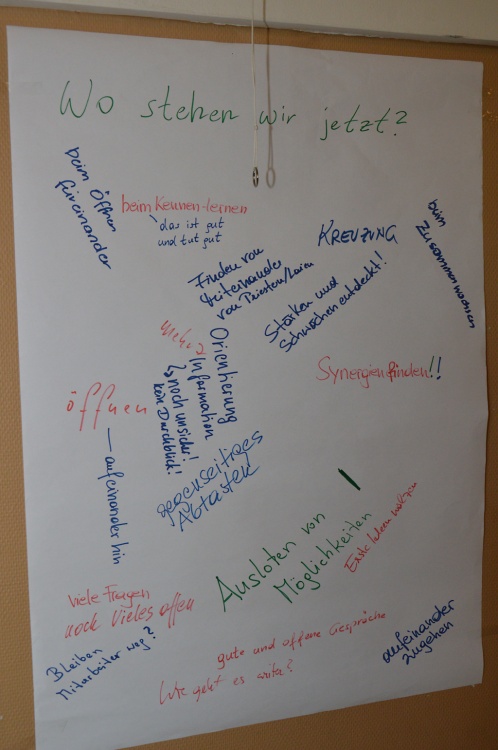 Wo stehen wir jetzt?
beim Öffnen
füreinander
beim Kennen-lernen
das ist gut
und tut gut
KREUZUNG
beim
Zusammenwachsen
Finden von
Miteinander
von Priestern/Laien
Stärken und
Schwächen entdeckt!
Mehr
Orientierung
Information
noch unsicher!
kein Durchblick!
Synergien finden!!
öffnen
— aufeinander hin
gegenseitiges
Abtasten
Ausloten von
Möglichkeiten
Erste
viele Fragen
noch Vieles offen
Bleiben
Mitarbeiter weg?
gute und offene Gespräche
Wie geht es weiter?
aufeinander
zugehen